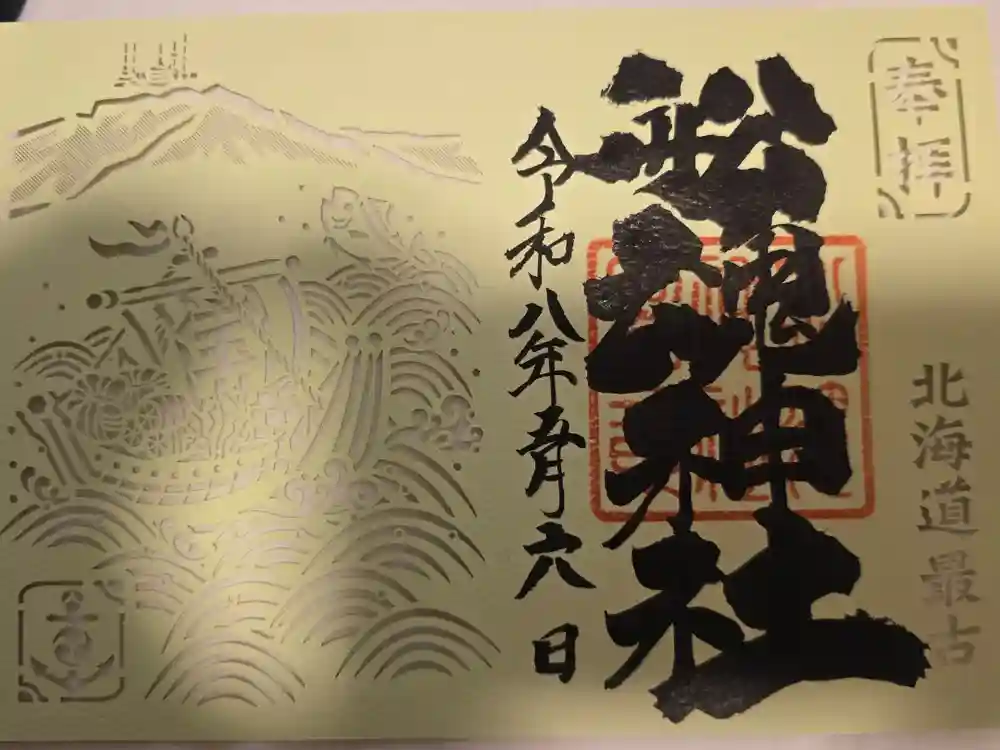 奉拝
北海道最古
舩魂神社
令和八年五月六日